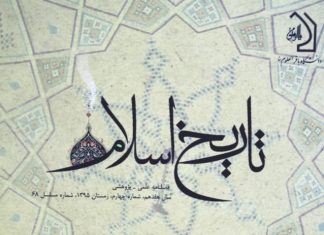 دانشگاه باقرالعلوم
تاریخ اسلام
فصلنامه علمی - پژوهشی
سال هفدهم، شماره چهارم، زمستان ۱۳۹۵، شماره مسلسل ۶۸